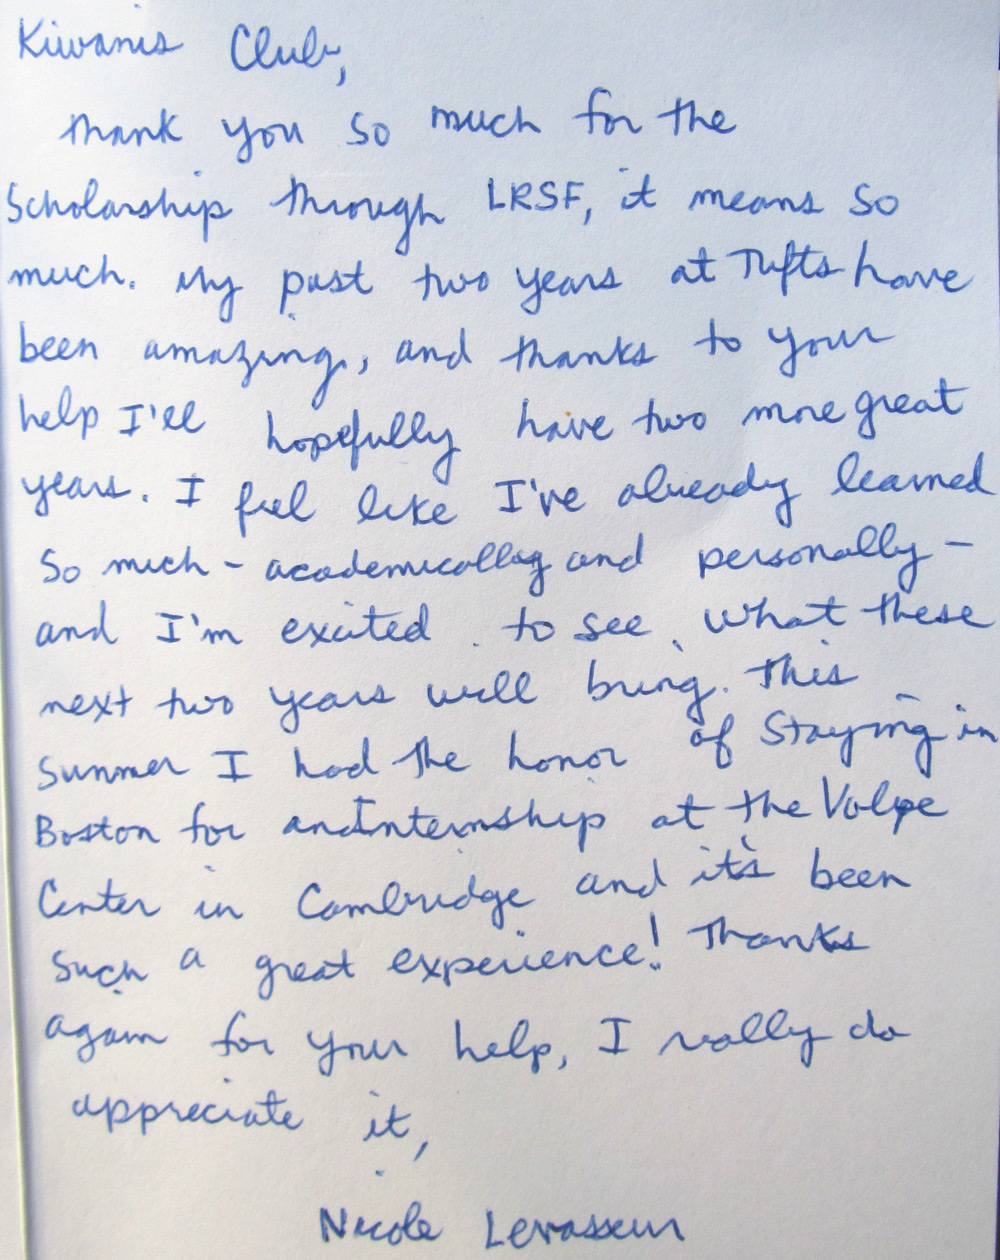 Kiwanis Club,
Thank you so much for the
Scholarship through LRSF, it means so
much. My past two years at Tufts have
been amazing, and thanks to your
help I'll hopefully have two more great
years. I feel like I've already learned
so much - academically and personally -
and I'm excited to see what these
next two years will bring. This
summer I had the honor of staying in
Boston for an Internship at the Volpe
Center in Cambridge and it's been
such a great experience! Thanks
again for your help, I really do
appreciate it,
Nicole Levasseur